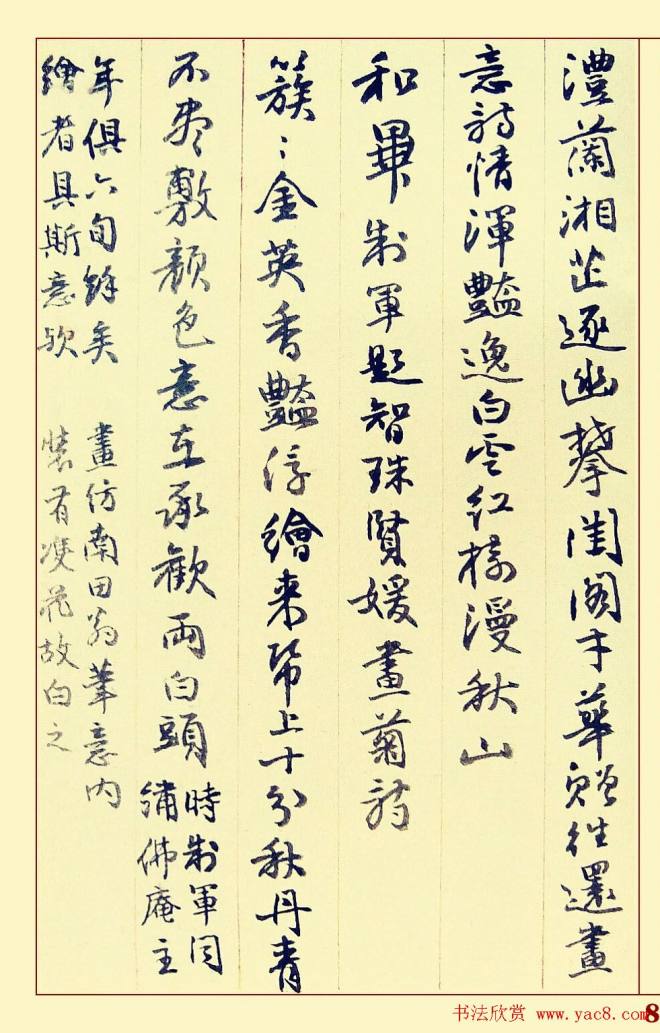 澧蘭湘芷逐幽攀閨閣才華贈往還畫
意詩情渾豔逸白雲紅樹漫秋山
和畢制軍題智珠賢媛畫菊詩
簇〻金英香豔浮繪來帋上十分秋丹青
不盡敷顏色意在承歡兩白頭
時制軍同
繡佛庵主
年俱六旬餘矣
繪者具斯意歟
畫仿南田翁筆意內
裝有雙花故白之
书法欣赏 www.yac8.com
8